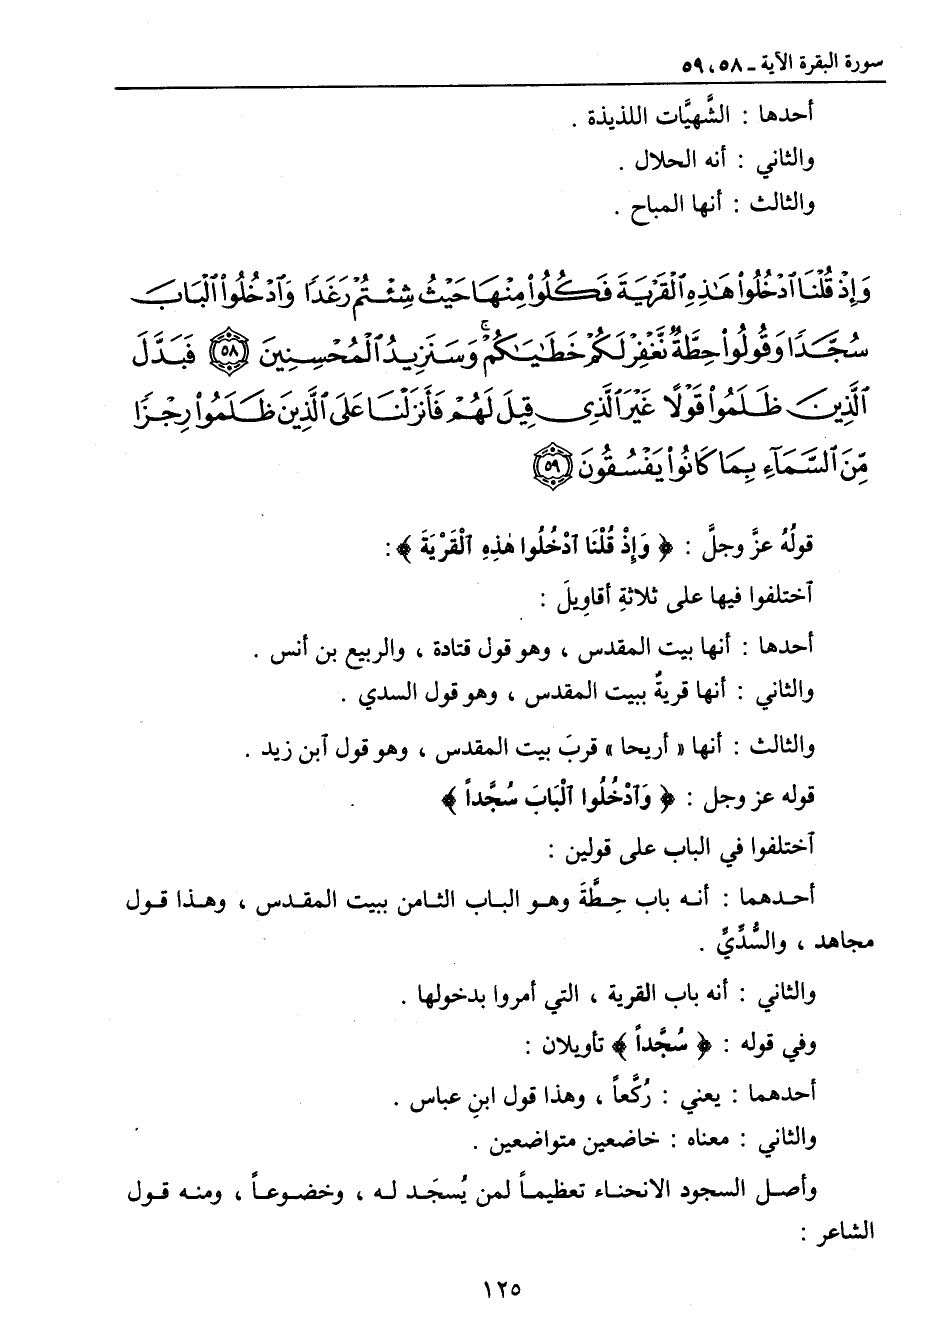 سورة البقرة الآية ـ ٥٨، ٥٩
أحدها : الشَّهيَّات اللذيذة .
والثاني : أنه الحلال .
والثالث : أنها المباح .
وَإِذْ قُلْنَا ٱدْخُلُوا۟ هَٰذِهِ ٱلْقَرْيَةَ فَكُلُوا۟ مِنْهَا حَيْثُ شِئْتُمْ رَغَدًا وَٱدْخُلُوا۟ ٱلْبَابَ
سُجَّدًا وَقُولُوا۟ حِطَّةٌ نَّغْفِرْ لَكُمْ خَطَٰيَٰكُمْ ۚ وَسَنَزِيدُ ٱلْمُحْسِنِينَ ٥٨ فَبَدَّلَ
ٱلَّذِينَ ظَلَمُوا۟ قَوْلًا غَيْرَ ٱلَّذِى قِيلَ لَهُمْ فَأَنزَلْنَا عَلَى ٱلَّذِينَ ظَلَمُوا۟ رِجْزًا
مِّنَ ٱلسَّمَآءِ بِمَا كَانُوا۟ يَفْسُقُونَ ٥٩
قولُهُ عزَّ وجلَّ : ﴿ وَإِذْ قُلْنَا ٱدْخُلُوا هٰذِهِ ٱلْقَرْيَةَ ﴾ :
ٱختلفوا فيها على ثلاثةِ أقاويلَ :
أحدها : أنها بيت المقدس ، وهو قول قتادة ، والربيع بن أنس .
والثاني : أنها قريةٌ ببيت المقدس ، وهو قول السدي .
والثالث : أنها « أريحا » قربَ بيت المقدس ، وهو قول ٱبن زيد .
قوله عز وجل : ﴿ وَٱدْخُلُوا ٱلْبَابَ سُجَّداً ﴾
ٱختلفوا في الباب على قولين :
أحدهما : أنه باب حِطَّةَ وهو الباب الثامن ببيت المقدس ، وهذا قول
مجاهد ، والسُّدِّيِّ .
والثاني : أنه باب القرية ، التي أمروا بدخولها .
وفي قوله : ﴿ سُجَّداً ﴾ تأويلان :
أحدهما : يعني : رُكَّعاً ، وهذا قول ابنِ عباس .
والثاني : معناه : خاضعين متواضعين .
وأصل السجود الانحناء تعظيماً لمن يُسجَد له ، وخضوعاً ، ومنه قول
الشاعر :
١٢٥